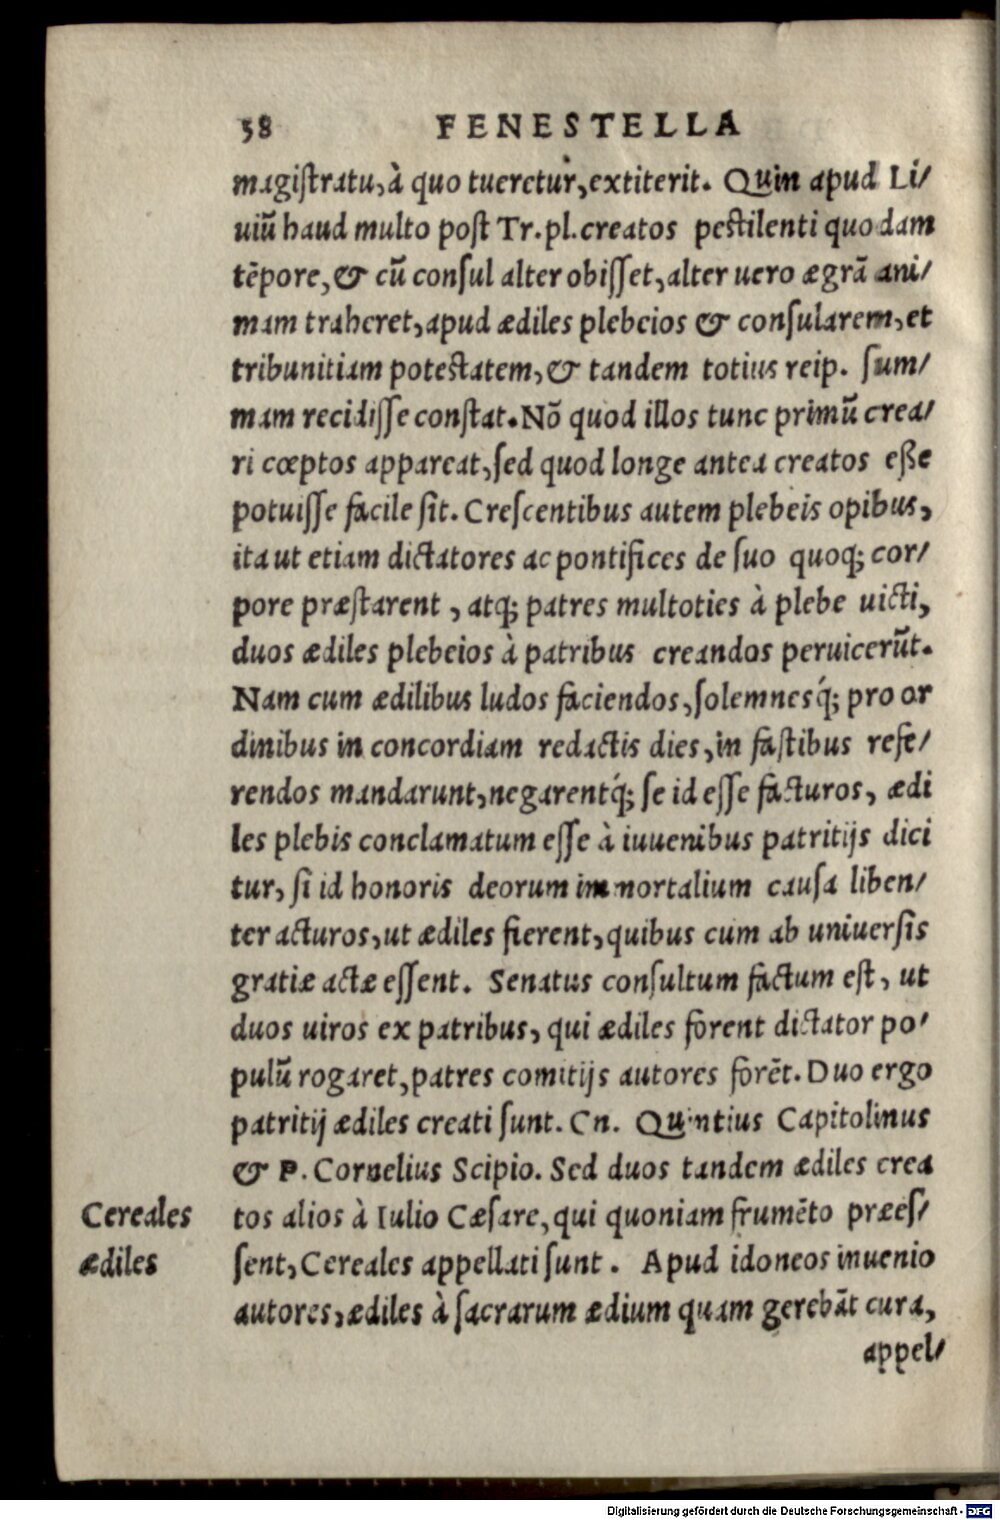 58 FENESTELLA
magiſtratu, à quo tueretur, extiterit. Quin apud Li/
uiũ haud multo poſt Tr. pl. creatos peſtilenti quodam
tẽpore, & cũ conſul alter obiſſet, alter uero ægrã ani/
mam traheret, apud ædiles plebeios & conſularem, et
tribunitiam poteſtatem, & tandem totius reip. ſum/
mam recidiſſe conſtat. Nõ quod illos tunc primũ crea/
ri cœptos appareat, ſed quod longe antea creatos eße
potuiſſe facile ſit. Creſcentibus autem plebeis opibus,
ita ut etiam dictatores ac pontifices de ſuo quoq; cor/
pore præſtarent, atq; patres multoties à plebe uicti,
duos ædiles plebeios à patribus creandos peruicerũt.
Nam cum ædilibus ludos faciendos, ſolemnesq́; pro or
dinibus in concordiam redactis dies, in faſtibus refe/
rendos mandarunt, negarentq́; ſe id eſſe facturos, ædi
les plebis conclamatum eſſe à iuuenibus patritijs dici
tur, ſi id honoris deorum immortalium cauſa liben/
ter acturos, ut ædiles fierent, quibus cum ab uniuerſis
gratiæ actæ eſſent. Senatus conſultum factum eſt, ut
duos uiros ex patribus, qui ædiles forent dictator po/
pulũ rogaret, patres comitijs autores forẽt. Duo ergo
patritij ædiles creati ſunt. Cn. Quintius Capitolinus
& P. Cornelius Scipio. Sed duos tandem ædiles crea
Cereales tos alios à Iulio Cæſare, qui quoniam frumẽto præeſ/
ædiles ſent, Cereales appellati ſunt. Apud idoneos inuenio
autores, ædiles à ſacrarum ædium quam gerebãt cura,
appel/
Digitalisierung gefördert durch die Deutsche Forschungsgemeinschaft - DFG